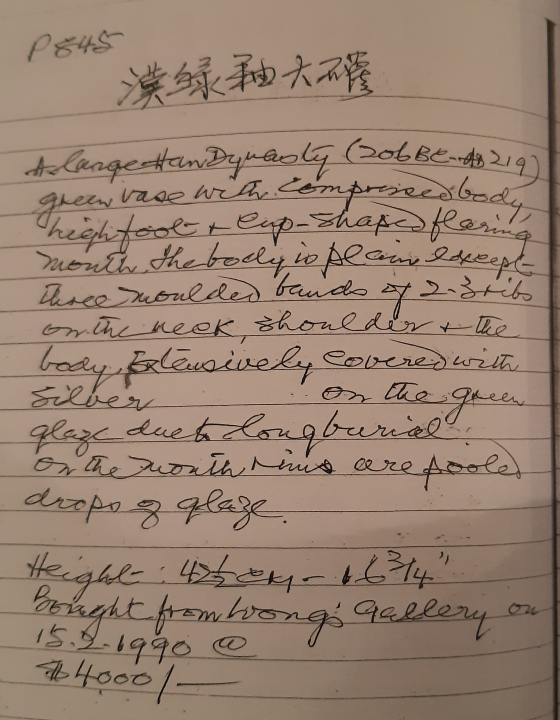 P845
漢綠釉大
A large Han Dynasty (206BC-AD219)
green vase with comprised body,
high foot + cup-shaped flaring
mouth. The body is plain except
three moulded bands of 2-3 ribs
on the neck, shoulder + the
body. Extensively covered with
silver on the green
glaze due to long burial.
On the mouth rims are pooled
drops of glaze.
Height: 42½ cm - 16 3/4"
Bought from Wong's Gallery on
15.2.1990 @
$4000/—